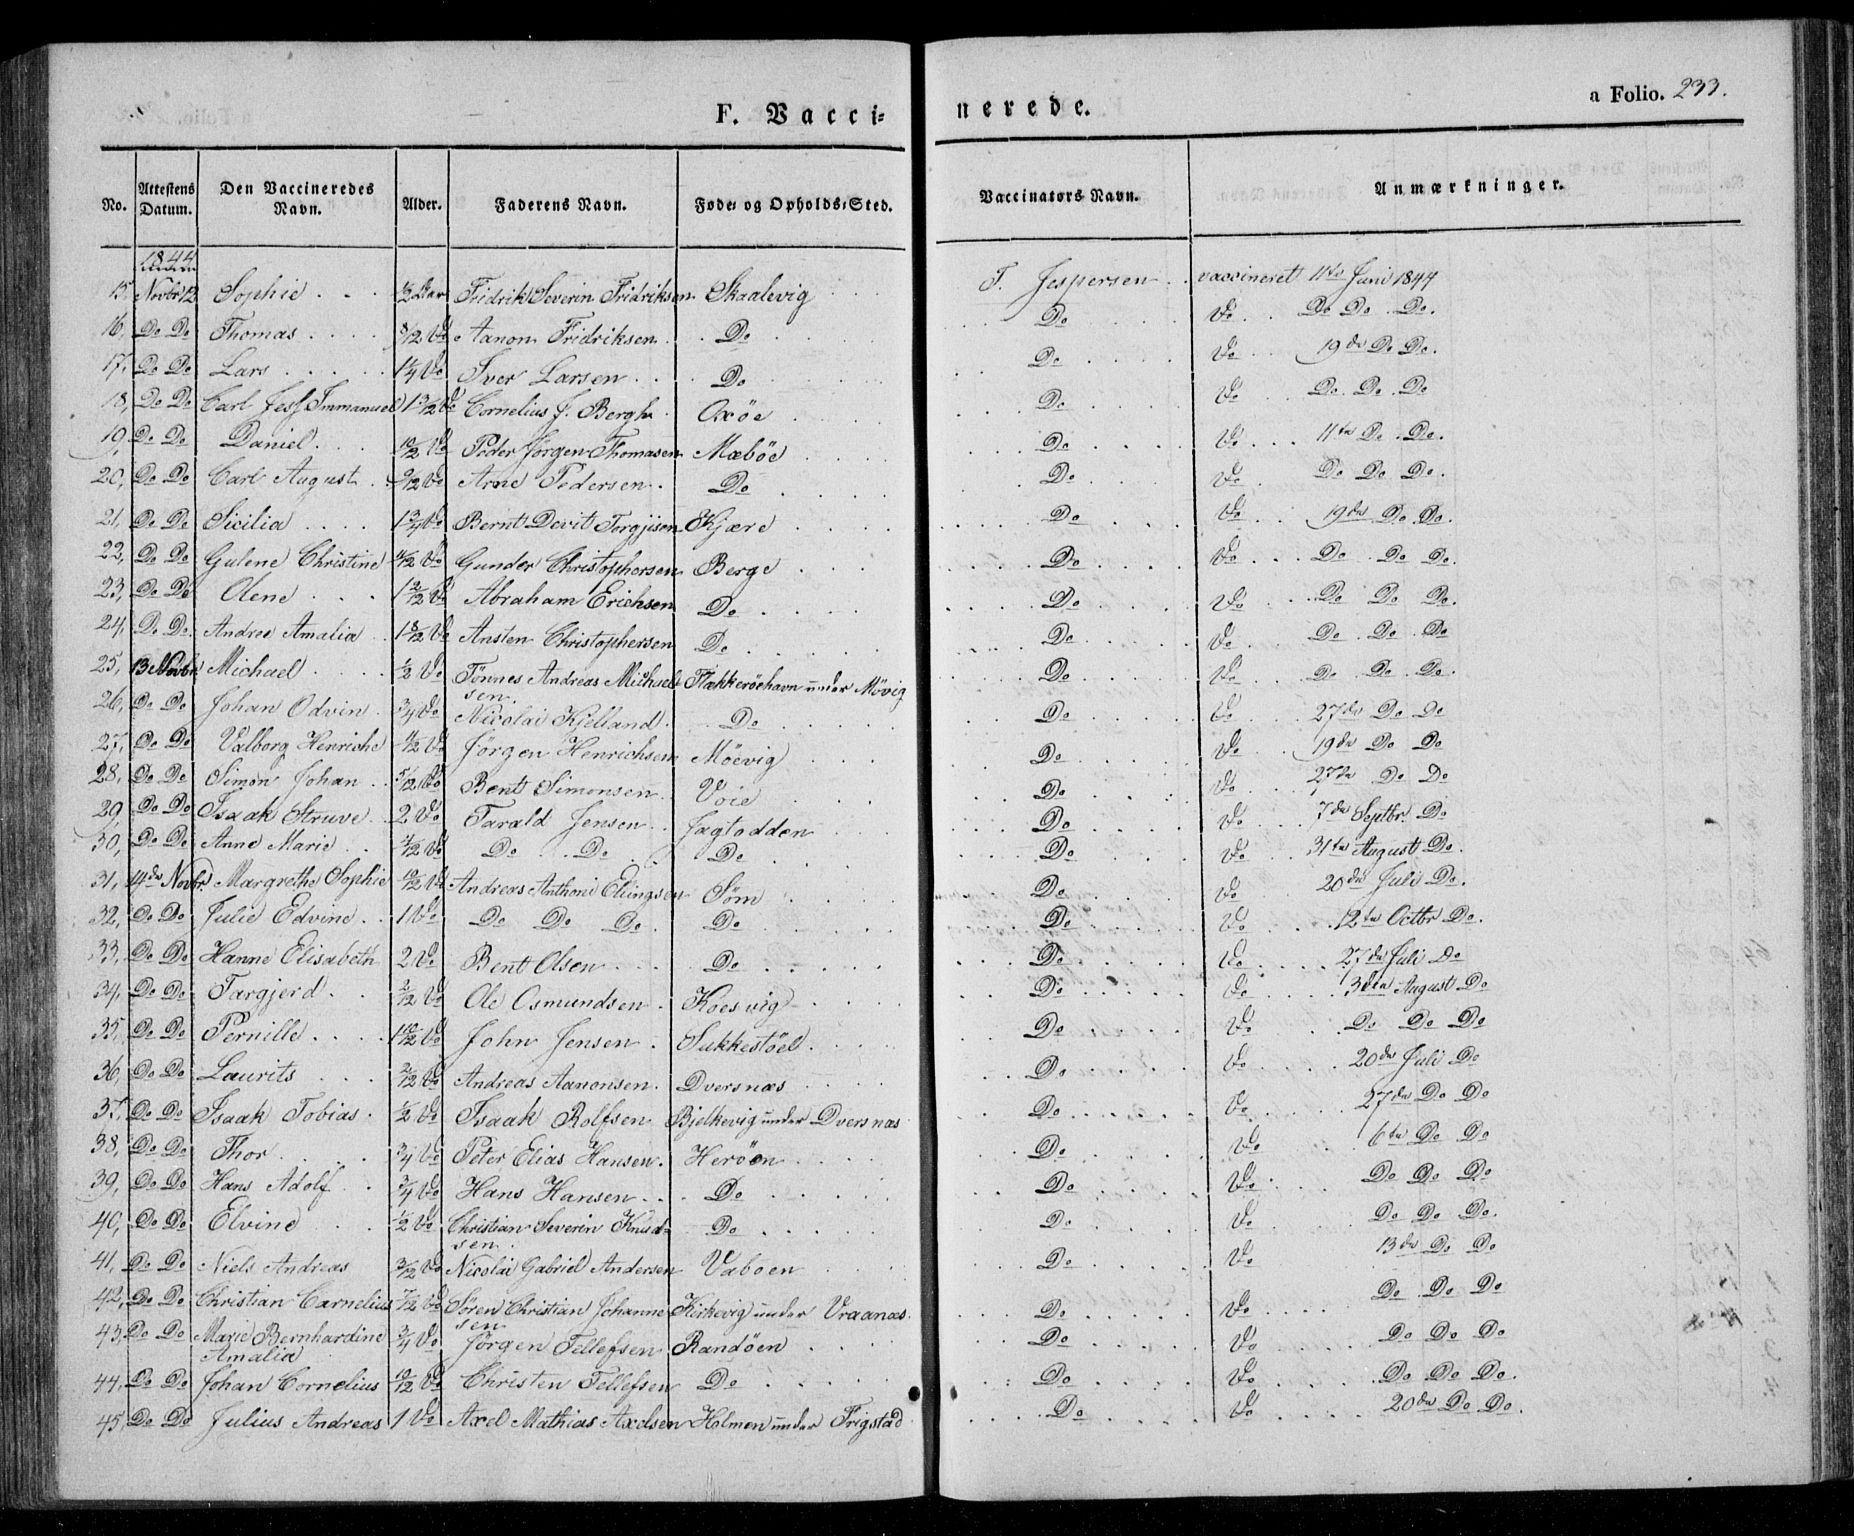 F. Vacci= nerede. a Folio. 233.
No. Attestens Datum. Den Vaccineredes Navn. Alder. Faderens Navn. Føde- og Opholds-Sted. Vaccinators Navn. Anmærkninger.
1844
15, Novbr 12 Sophie 1/2 Aar Fridrik Severin Fridriksen Skaalevig T. Jespersen vaccineret 11te Juni 1844
16, Do Do Thomas 8/12 Do Aanon Fridriksen Do Do Do Do Do Do.
17, Do Do Lars 1 1/4 Do Iver Larsen Do Do Do 19de Do Do.
18, Do Do Carl Jess Immanuel Do Cornelius J. Bergh Oxöe Do Do Do Do Do
19, Do Do Daniel 10/12 Do Peder Jörgen Thomasen Mæböe Do Do 11te Do Do.
20, Do Do Carl August 9/12 Do Arne Pedersen Do Do Do Do Do Do.
21, Do Do Sicilia 1 3/4 Do Bernt Devit Torgjisen Kjære Do Do 19de Do Do.
22, Do Do Gulene Christine Do Gunder Christophersen Berge Do Do Do Do Do.
23, Do Do Olene 1 2/12 Do Abraham Erichsen Do Do Do Do Do Do.
24, Do Do Andree Amalia 1 8/12 Do Ansten Christophersen Do Do Do Do Do Do
25, 13 Novbr Michael 1/2 Do Tönnes Andreas Michael- Flekkeröehavn under Mövig Do Do Do Do Do.
sen
26, Do Do Johan Odvin 3/4 Do Nicolai Kjelland Do Do Do 27de Do Do
27, Do Do Valborg Henriche Do Jörgen Henrichsen Möevig Do Do 19de Do Do
28, Do Do Simon Johan 5/12 Do Bent Simonsen Voie Do Do 27de Do Do
29, Do Do Isaak Struve 2 Do Tarald Jensen Jagtodden Do Do 7de Septbr. Do
30, Do Do Anne Marie Do Do Do Do Do Do 31te August Do.
31, 14de Novbr. Margrethe Sophie 10/12 Do Andreas Anthoni Ellingsen Söm Do Do 20de Juli Do.
32, Do Do Julie Edvine 1 Do Do Do Do Do Do Do 12te Octbr Do.
33, Do Do Hanne Elisabeth 2 Do Bent Olsen Do Do Do 27de Juli Do
34, Do Do Targjerd 2/12 Do Ole Osmundsen Koesvig Do Do August Do
35, Do Do Pernille 1 10/12 Do John Jensen Sukkestöel Do Do Do Do Do
36, Do Do Laurits 2/12 Do Andreas Aanonsen Dversnæs Do Do 20de Juli Do
37, Do Do Isaak Tobias 1/2 Do Isaak Rolfsen Bjelkevig under Dversnæs Do Do 27de Do Do
38, Do Do Thor 3/4 Do Peter Elias Hansen Heröen Do Do 6te Do Do
39, Do Do Hans Adolf 3/4 Do Hans Hansen Do Do Do Do Do Do
40, Do Do Elvine 1/2 Do Christian Severin Knud- Do Do Do Do Do Do.
sen
41, Do Do Niels Andreas 3/12 Do Nicolai Gabriel Andersen Vaböen Do Do 13de Do Do
42, Do Do Christian Carnelius 7/12 Do Sören Christian Johanne- Kirkevig under Vraanæs Do Do Do Do Do
sen
43, Do Do Marie Bernhardine 3/4 Do Jörgen Tellefsen Randöen Do Do Do Do Do
Amalia
44, Do Do Johan Cornelius 10/12 Do Christen Tellefsen Do Do Do Do Do Do.
45, Do Do Julius Andreas 1 Do Axel Mathias Axelsen Holmen under Frigstad Do Do 20de Do Do.